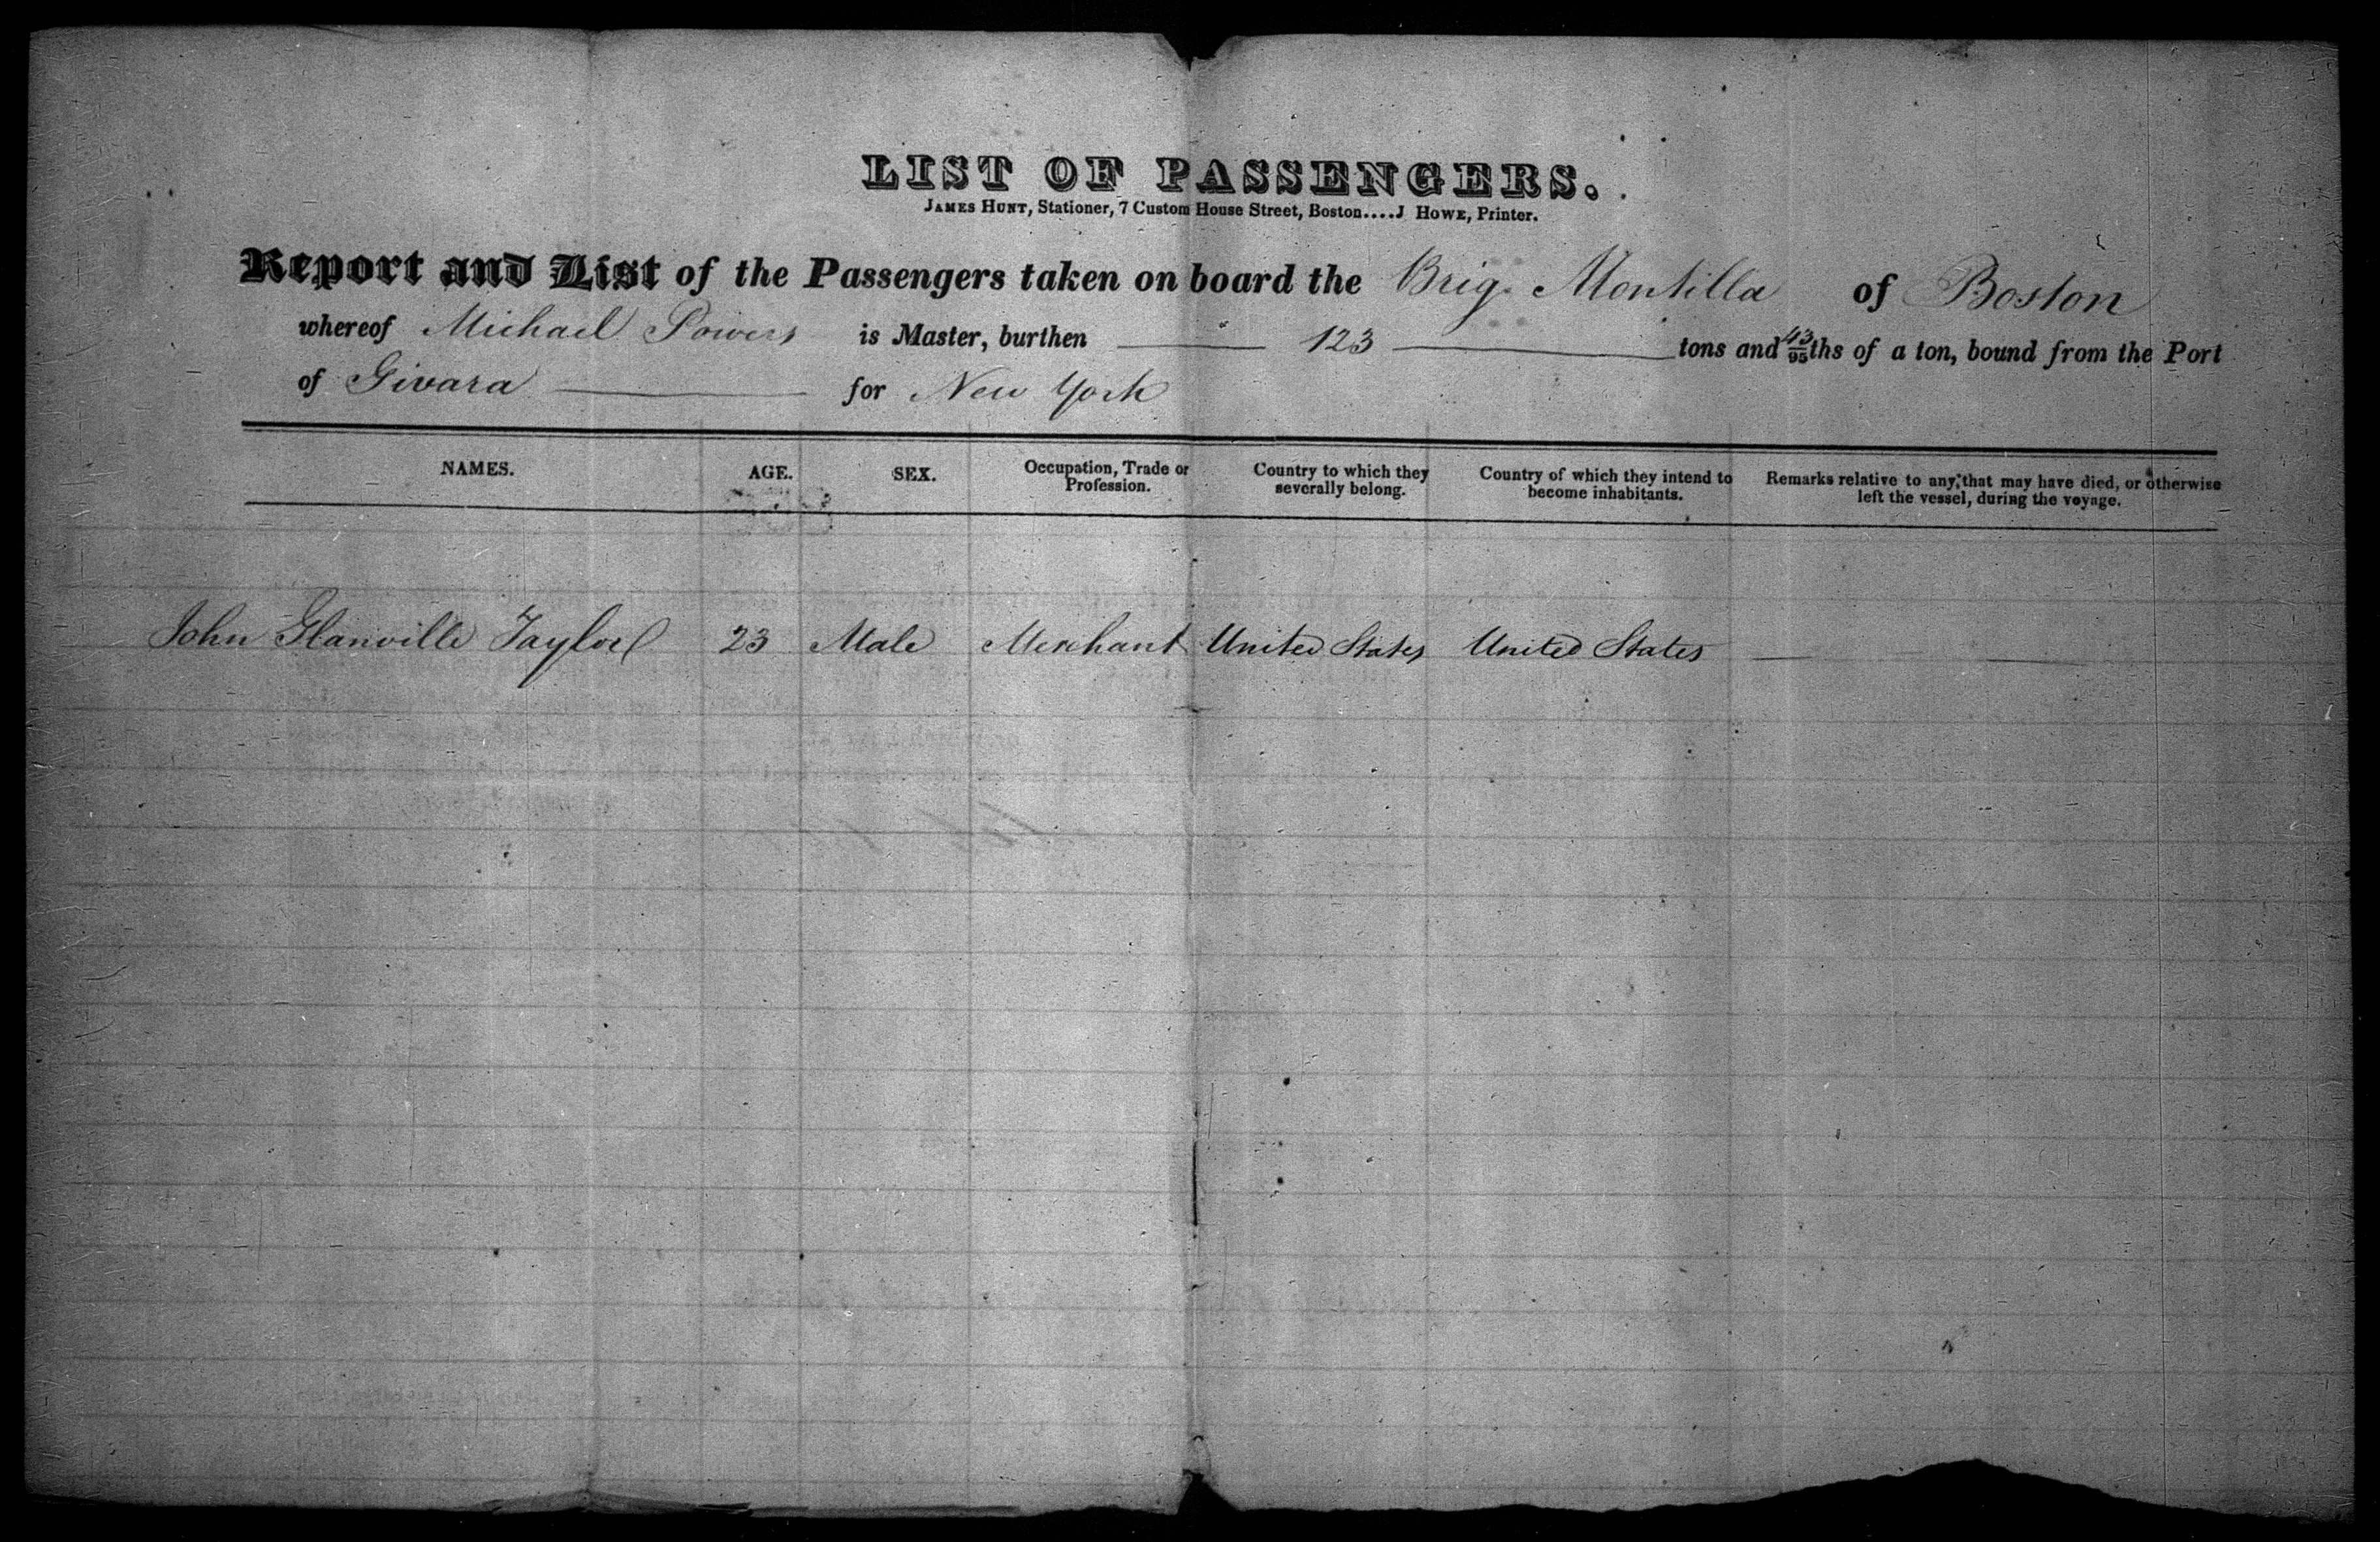 LIST OF PASSENGERS.
JAMES HUNT, Stationer, 7 Custom House Street, Boston....J HOWE, Printer.
Report and List of the Passengers taken on board the Brig. Montilla of Boston
whereof Michael Powers is Master, burthen 123 tons and 43/95ths of a ton, bound from the Port
of Givara for New York
NAMES. AGE. SEX. Occupation, Trade or Profession. Country to which they severally belong. Country of which they intend to become inhabitants. Remarks relative to any that may have died, or otherwise left the vessel, during the voyage.
John Glanville Taylor 23 Male Merchant United States United States